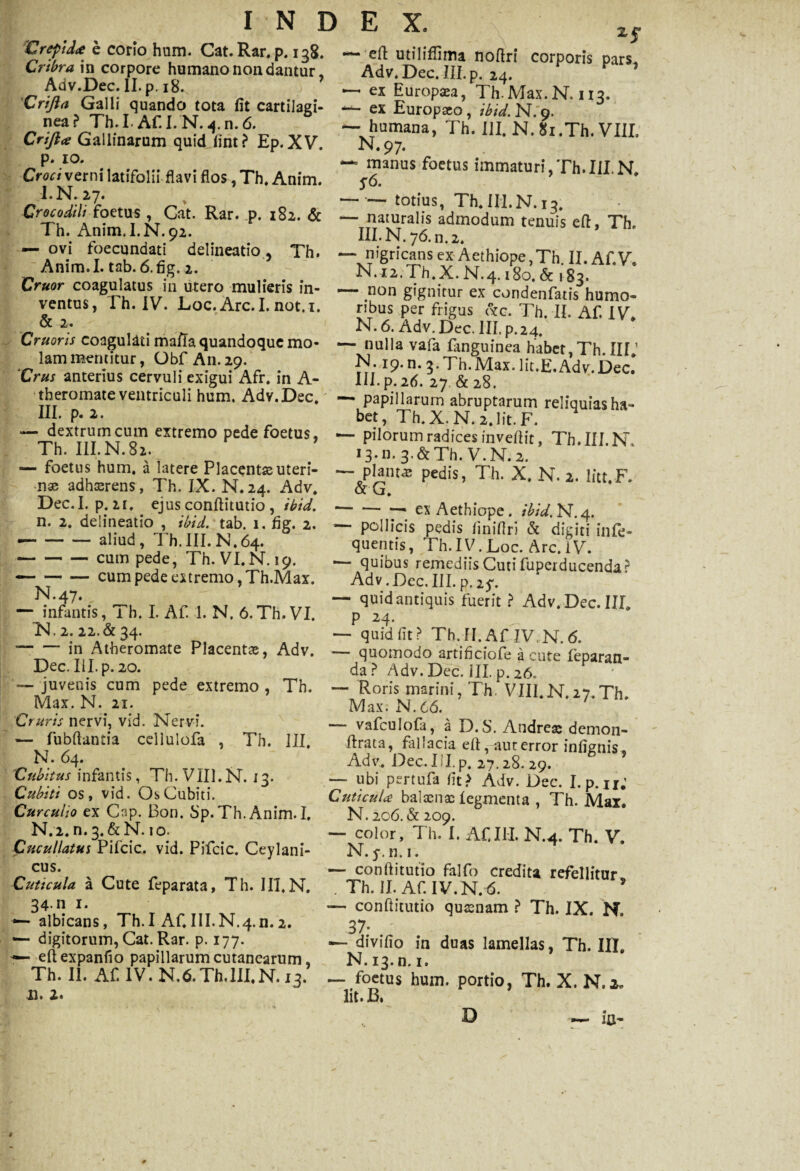 INDEX. 25
Crepidæ è corio hum. Cat. Rar. p. 138.
Cribra in corpore humano non dantur,
Adv. Dec. II. p. 18.
Crista Galli quando tota sit cartilagi-
nea? Th. I. Af. I. N. 4. n. 6.
Cristæ Gallinarum quid sint? Ep. XV.
p. 10.
Croci verni latifolii flavi flos, Th. Anim.
I. N. 27.
Crocodili foetus, Cat. Rar. p. 182. &
Th. Anim. I. N. 92.
— ovi foecundati delineatio, Th.
Anim. I. tab. 6. fig. 2.
Cruor coagulatus in utero mulieris in-
ventus, Th. IV. Loc. Arc. I. not. 1.
& 2.
Cruoris coaguláti massa quandoque mo-
lam mentitur, Obs. An. 29.
Crus anterius cervuli exigui Afr. in A-
theromate ventriculi hum. Adv. Dec.
III. p. 2.
— dextrum cum extremo pede foetus,
Th. III. N. 82.
— foetus hum. à latere Placentæ uteri-
næ adhærens, Th. IX. N. 24. Adv.
Dec. I. p. 21. ejus constitutio, ibid.
n. 2. delineatio, ibid. tab. 1. fig. 2.
— — — aliud, Th. III. N. 64.
— — — cum pede, Th. VI. N. 19.
— — — cum pede extremo, Th. Max.
N. 47.
— infantis, Th. I. Af. I. N. 6. Th. VI.
N. 2. 22. & 34.
— — in Atheromate Placentæ, Adv.
Dec. III. p. 20.
— juvenis cum pede extremo, Th.
Max. N. 21.
Cruris nervi, vid. Nervi.
— substantia cellulosa, Th. III.
N. 64.
Cubitus infantis, Th. VIII. N. 13.
Cubiti os, vid. Os Cubiti.
Curculio ex Cap. Bon. Sp. Th. Anim. I.
N. 2. n. 3. & N. 10.
Cucullatus Piscic. vid. Piscic. Ceylani-
cus.
Cuticula à Cute separata, Th. III. N.
34. n 1.
— albicans, Th. I Af. III. N. 4. n. 2.
— digitorum, Cat. Rar. p. 177.
— est expansio papillarum cutanearum,
Th. II. Af. IV. N. 6. Th. III. N. 13.
n. 2.
— est utilissima nostri corporis pars,
Adv. Dec. III. p. 24.
— ex Europæa, Th. Max. N. 113.
— ex Europæo, ibid. N. 9.
— humana, Th. III. N. 81. Th. VIII.
N. 97.
— manus foetus immaturi, Th. III. N.
56.
— — totius, Th. III. N. 13.
— naturalis admodum tenuis est, Th.
III. N. 76. n. 2.
— nigricans ex Aethiope, Th. II. Af. V.
N. 12. Th. X. N. 4. 180. & 183.
— non gignitur ex condensatis humo-
ribus per frigus &c. Th. II. Af. IV.
N. 6. Adv. Dec. III. p. 24.
— nulla vasa sanguinea habet, Th. III.
N. 19. n. 3. Th. Max. lit. E. Adv. Dec.
III. p. 26. 27 & 28.
— papillarum abruptarum reliquias ha-
bet, Th. X. N. 2. lit. F.
— pilorum radices investit, Th. III. N.
13. n. 3. & Th. V. N. 2.
— plantæ pedis, Th. X. N. 2. litt. F.
& G.
— — — ex Aethiope. ibid. N. 4.
— pollicis pedis sinistri & digiti inse-
quentis, Th. IV. Loc. Arc. IV.
— quibus remediis Cuti superducenda?
Adv. Dec. III. p. 25.
— quid antiquis fuerit? Adv. Dec. III.
p 24.
— quid sit? Th. II. Af IV. N. 6.
— quomodo artificiose à cute separan-
da? Adv. Dec. III. p. 26.
— Roris marini, Th. VIII. N. 27. Th.
Max. N. 66.
— vasculosa, à D. S. Andreæ demon-
strata, fallacia est, aut error insignis,
Adv. Dec. III. p. 27. 28. 29.
— ubi pertusa sit? Adv. Dec. I. p. 11.
Cuticulæ balænæ segmenta, Th. Max.
N. 206. & 209.
— color, Th. I. Af. III. N. 4. Th. V.
N. 5. n. 1.
— constitutio falso credita refellitur,
Th. II. Af. IV. N. 6.
— constitutio quænam? Th. IX. N.
37.
— divisio in duas lamellas, Th. III.
N. 13. n. 1.
— foetus hum. portio, Th. X. N. 2.
lit. B.
D — in-